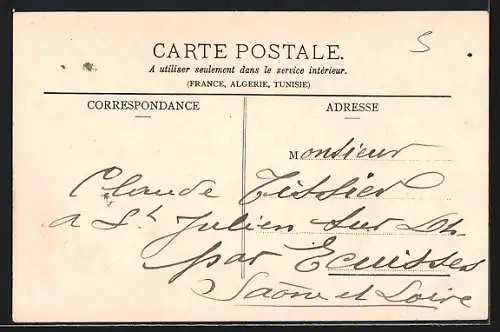 5
CARTE POSTALE.
A utiliser seulement dans le service intérieur.
(FRANCE, ALGERIE, TUNISIE)
CORRESPONDANCE
ADRESSE
Monsieur
Claude Tissier
a St Julien sur Dh.
par Ecuisses
Saône et Loire